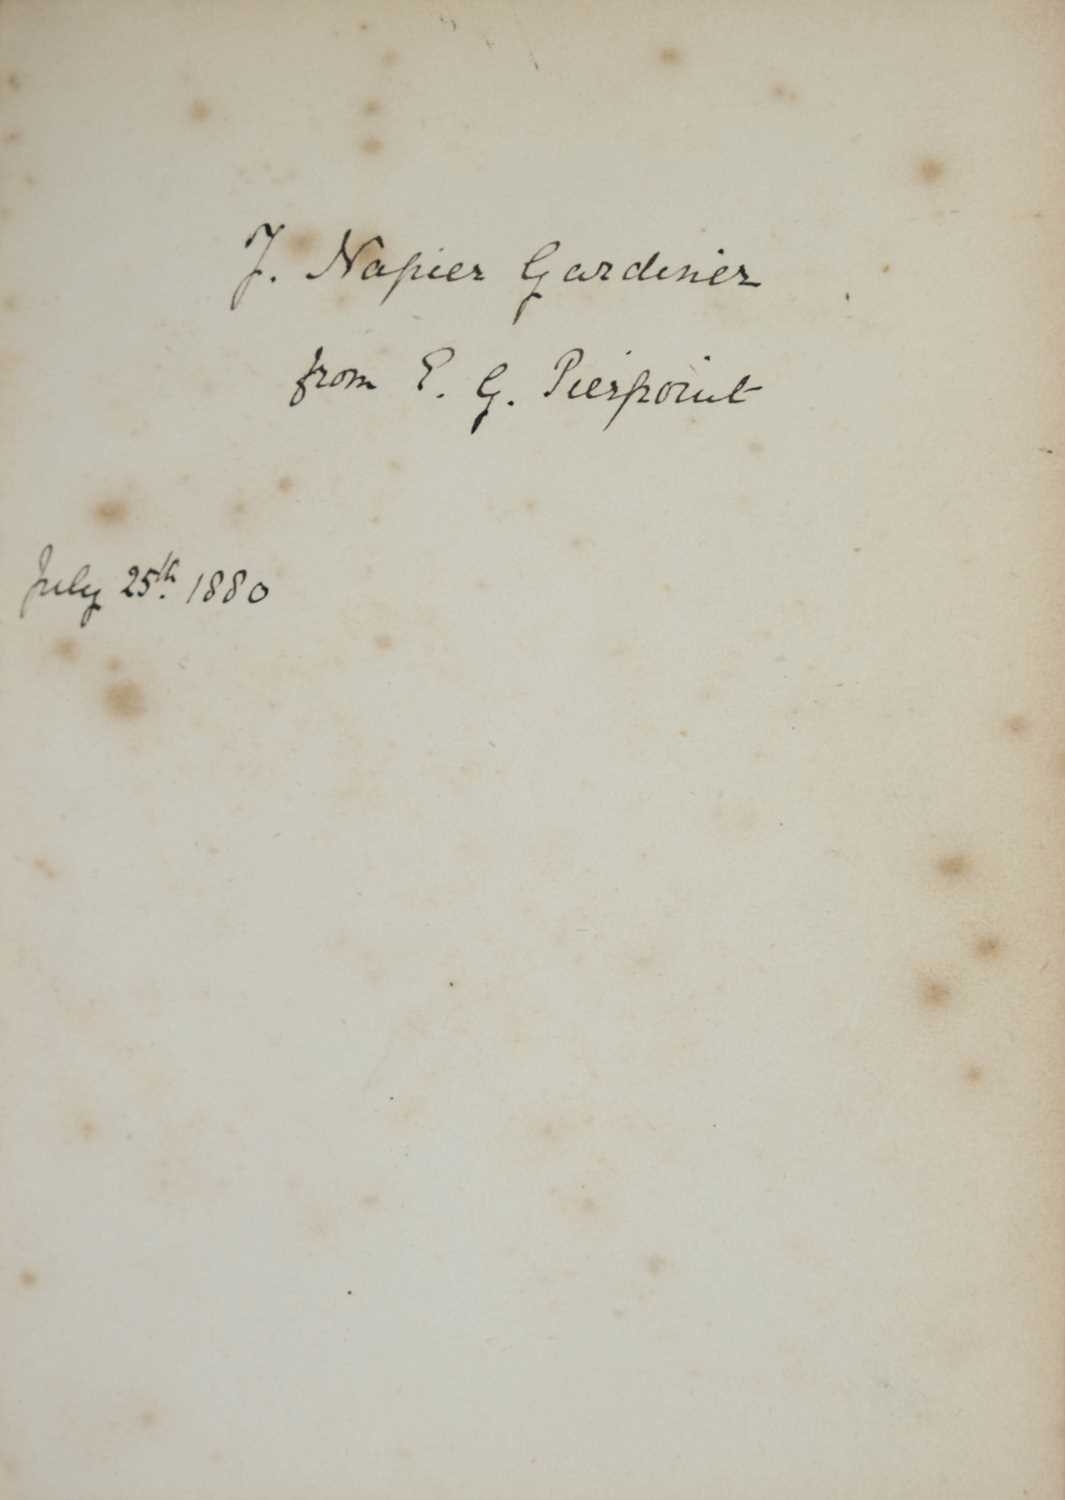 J. Napier Gardiner
from E. G. Pierpoint
July 25th. 1880